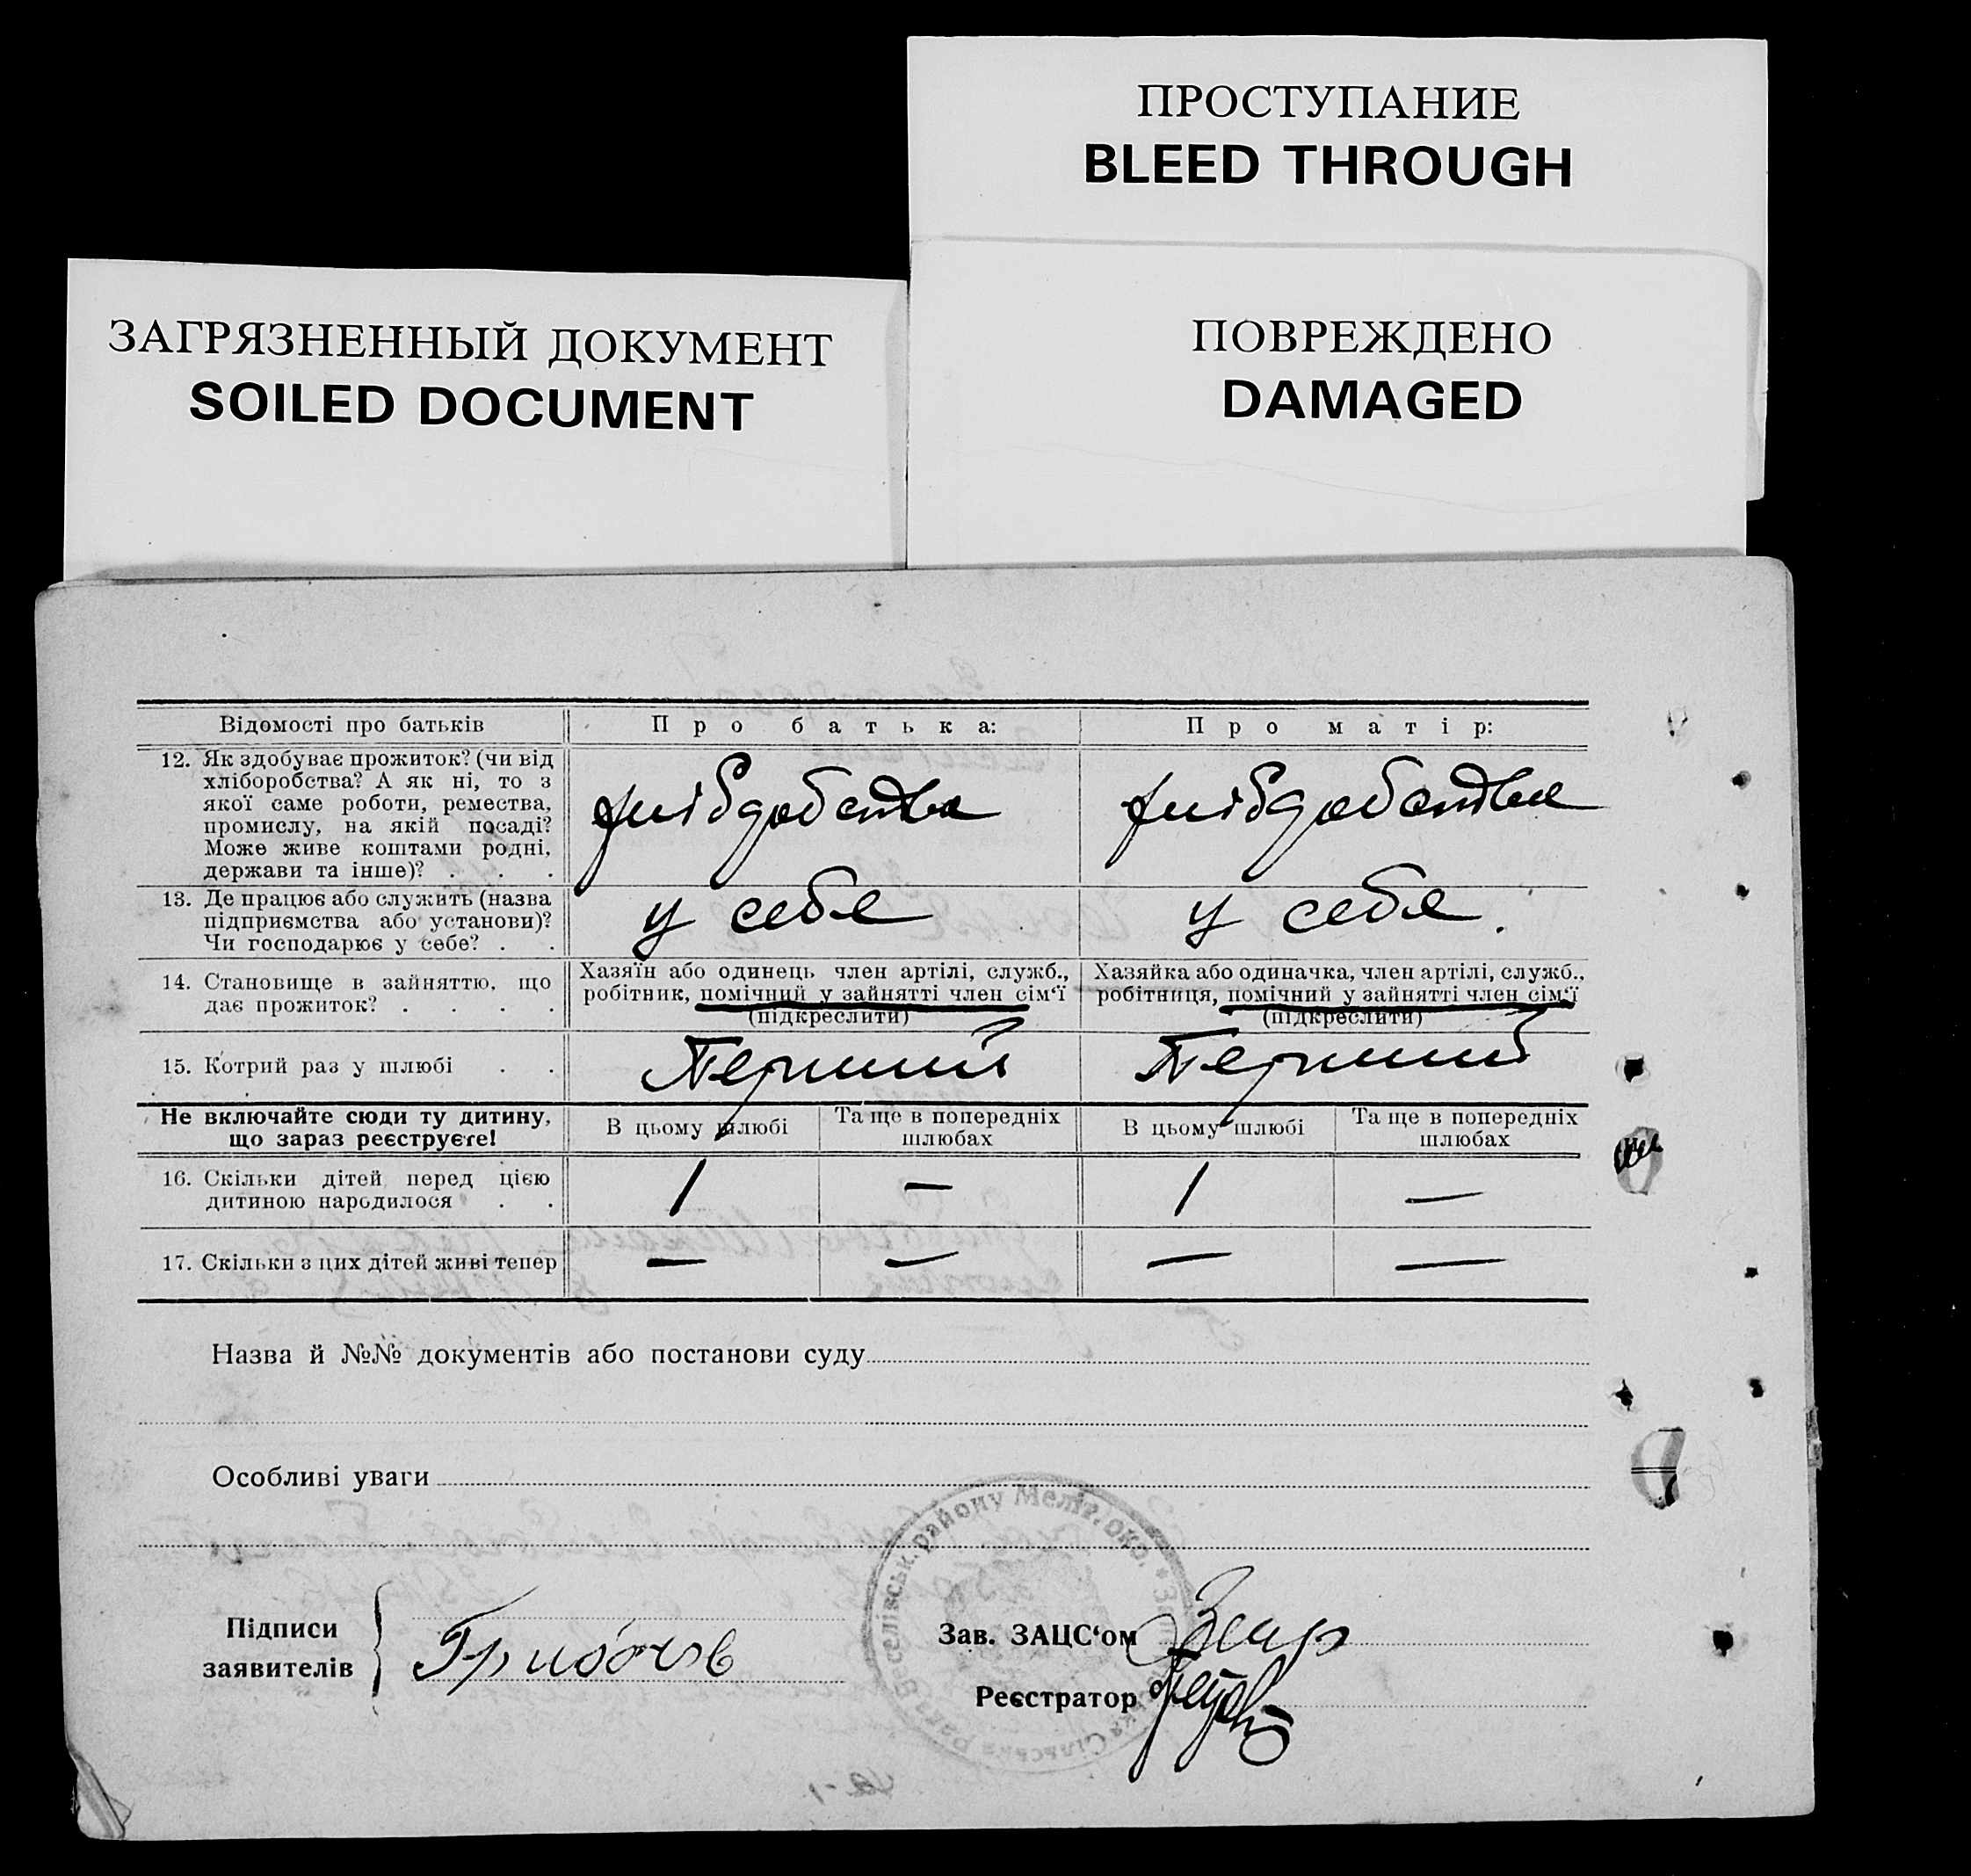 ПРОСТУПАНИЕ
BLEED THROUGH
ЗАГРЯЗНЕННЫЙ ДОКУМЕНТ
SOILED DOCUMENT
ПОВРЕЖДЕНО
DAMAGED
Відомості про батьків
Про батька:
Про матір:
12. Як здобуває прожиток? (чи від
хліборобства? А як ні, то з
якої саме роботи, ремества,
промислу, на якій посаді?
Може живе коштами родні,
держави та інше)? . . .
13. Де працює або служить (назва
підприємства або установи)?
Чи господарює у себе? . .
у себе
у себе.
14. Становище в зайняттю, що
дає прожиток? . . . .
Хазяїн або одинець член артілі, служб.,
робітник, помічний у зайнятті член сім'ї
(підкреслити)
Хазяйка або одиначка, член артілі, служб.,
робітниця, помічний у зайнятті член сім'ї
(підкреслити)
15. Котрий раз у шлюбі . .
Перший
Перший
Не включайте сюди ту дитину,
що зараз реєструєте!
В цьому шлюбі
Та ще в попередніх
шлюбах
В цьому шлюбі
Та ще в попередніх
шлюбах
16. Скільки дітей перед цією
дитиною народилося . .
1 — 1 —
17. Скільки з цих дітей живі тепер
— — — —
Назва й №№ документів або постанови суду
Особливі уваги
Підписи
заявителів
Грибочов
Зав. ЗАЦС'ом
Реєстратор
району Меліт. окр.
Сільська Рада